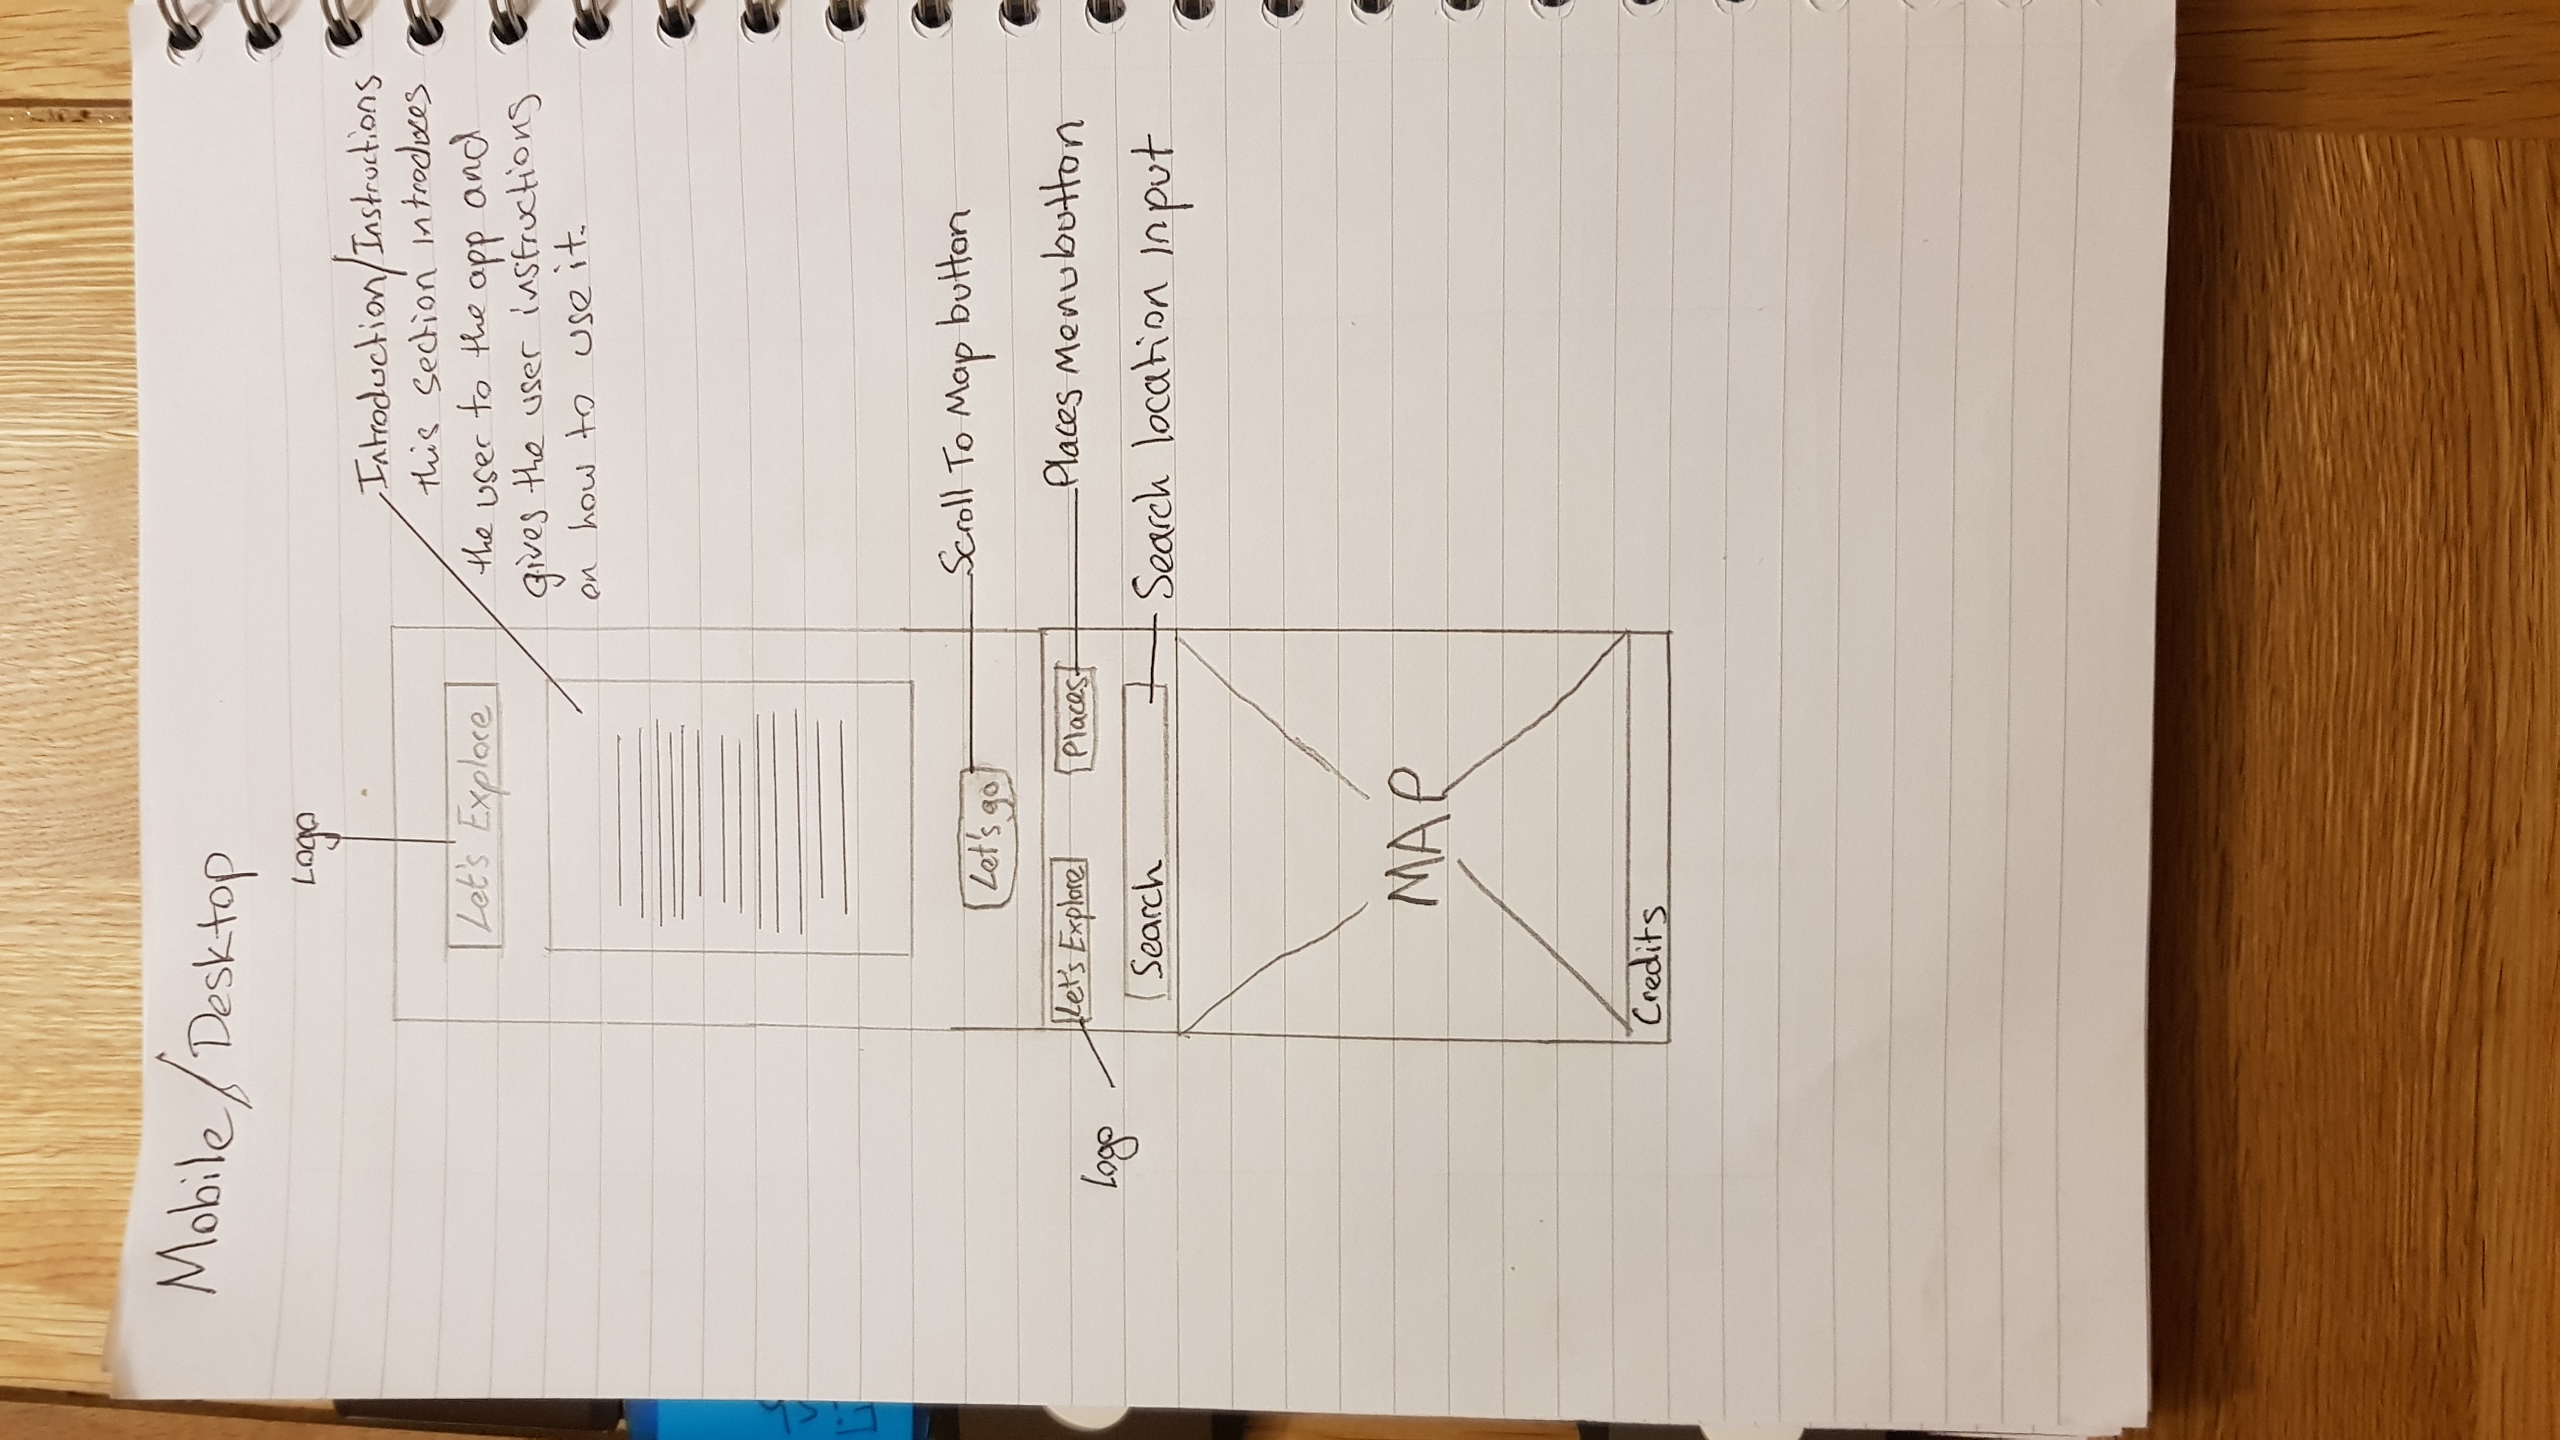 Mobile/Desktop
Logo
Let's Explore
Introduction/Instructions
this section introduces
the user to the app and
gives the user instructions
on how to use it.
Let's go
Scroll To Map button
Let's Explore
Places
Places Menu button
Logo
Search
Search location Input
MAP
Credits